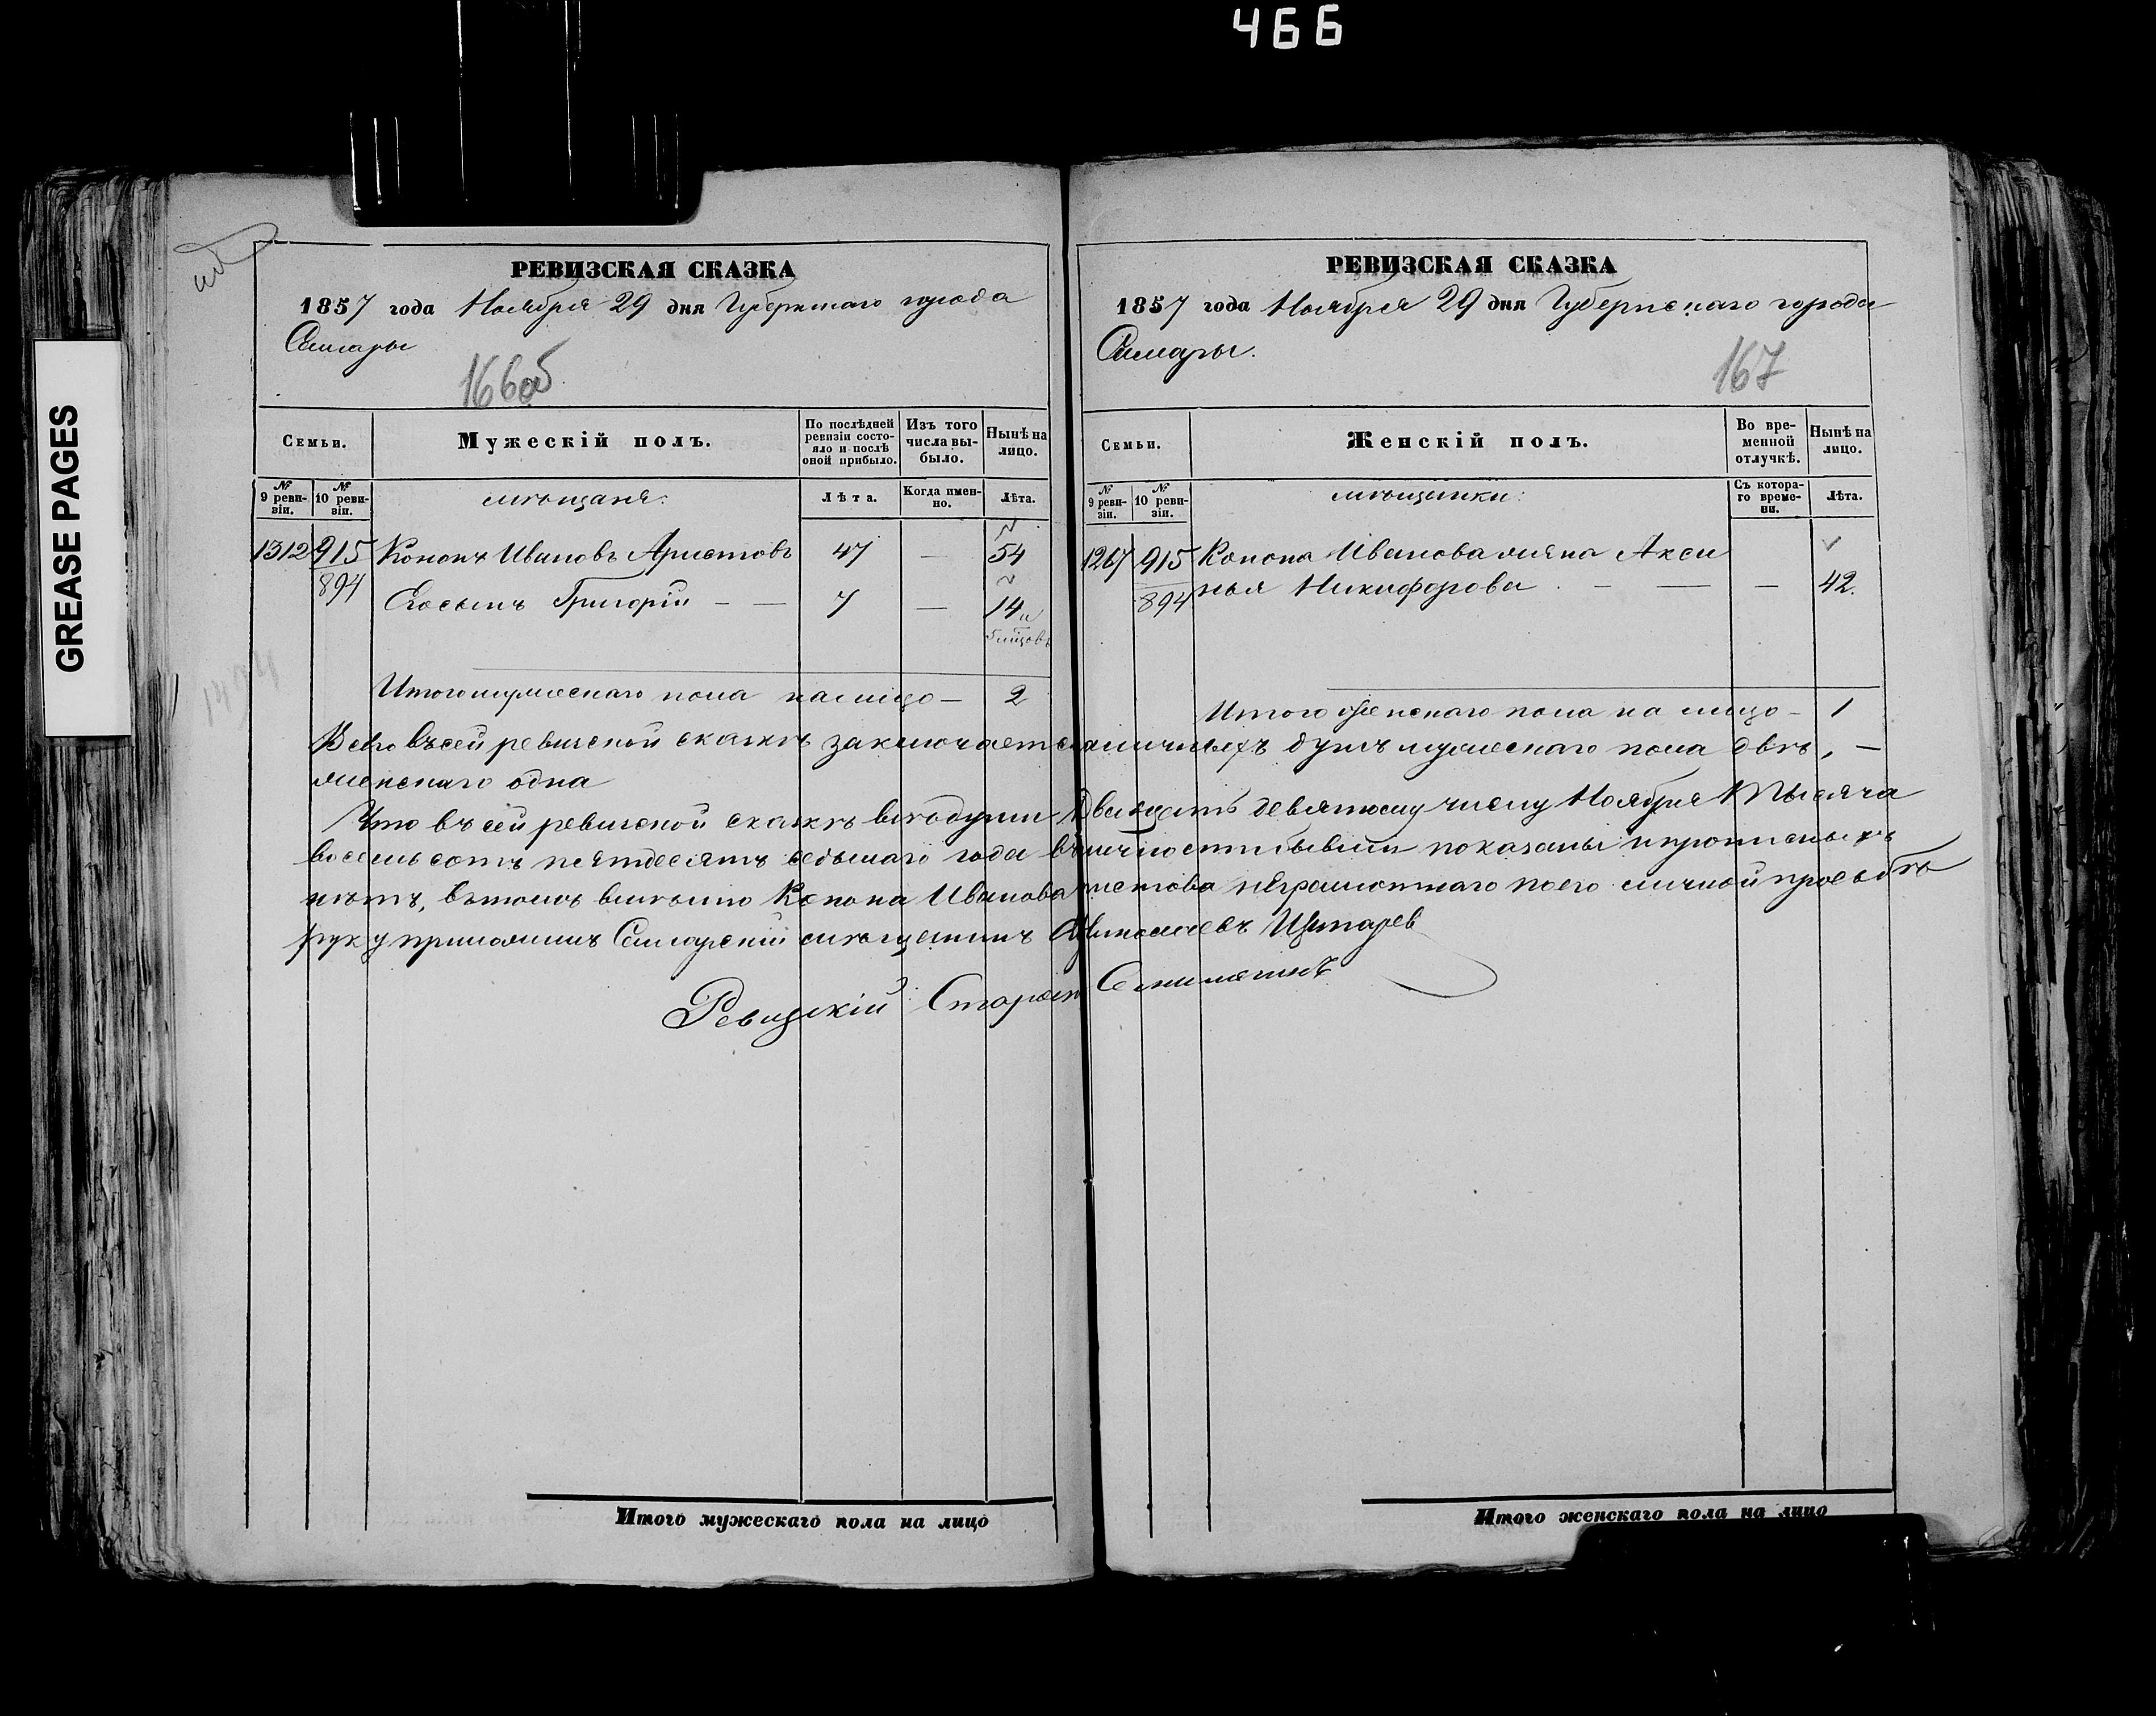 466
GREASE PAGES
РЕВИЗСКАЯ СКАЗКА
1857 года Ноября 29 дня Губернскаго города
Самары
166об
Семьи.
Мужескій полъ.
По послѣдней ревизіи состояло и послѣ оной прибыло.
Изъ того числа выбыло.
Нынѣ на лицо.
№ 9 ревизіи.
№ 10 ревизіи.
мѣщане:
Лѣта.
Когда именно.
Лѣта.
1312 915 Кононъ Ивановъ Аристовъ 47 — 54
894
Его сынъ Григорій — — 7 — 14
Итого мужескаго пола на лицо — 2
РЕВИЗСКАЯ СКАЗКА
1857 года Ноября 29 дня Губернскаго города
Самары.
167
Семьи.
Женскій полъ.
Во временной отлучкѣ.
Нынѣ на лицо.
№ 9 ревизіи.
№ 10 ревизіи.
мѣщанки:
Съ котораго времени.
Лѣта.
1267 915 Конона Иванова жена Акси
894 нья Никифорова . — — — 42.
Итого женскаго пола на лицо — 1
Всего въ сей ревиской сказкѣ заключается наличныхъ душъ мужескаго пола двѣ, —
женскаго одна
Что въ сей ревиской сказкѣ всѣ души Двадцать девятому числу Ноября Тысяча
восемьсотъ пятдесятъ седьмаго года въ личности бывши показаны и прописныхъ
нѣтъ, въ томъ вмѣсто Конона Иванова Аристова неграмотнаго по его личной прозьбѣ
руку приложилъ Самарскій мѣщанинъ
Ревизскій Староста
Итого мужескаго пола на лицо
Итого женскаго пола на лицо